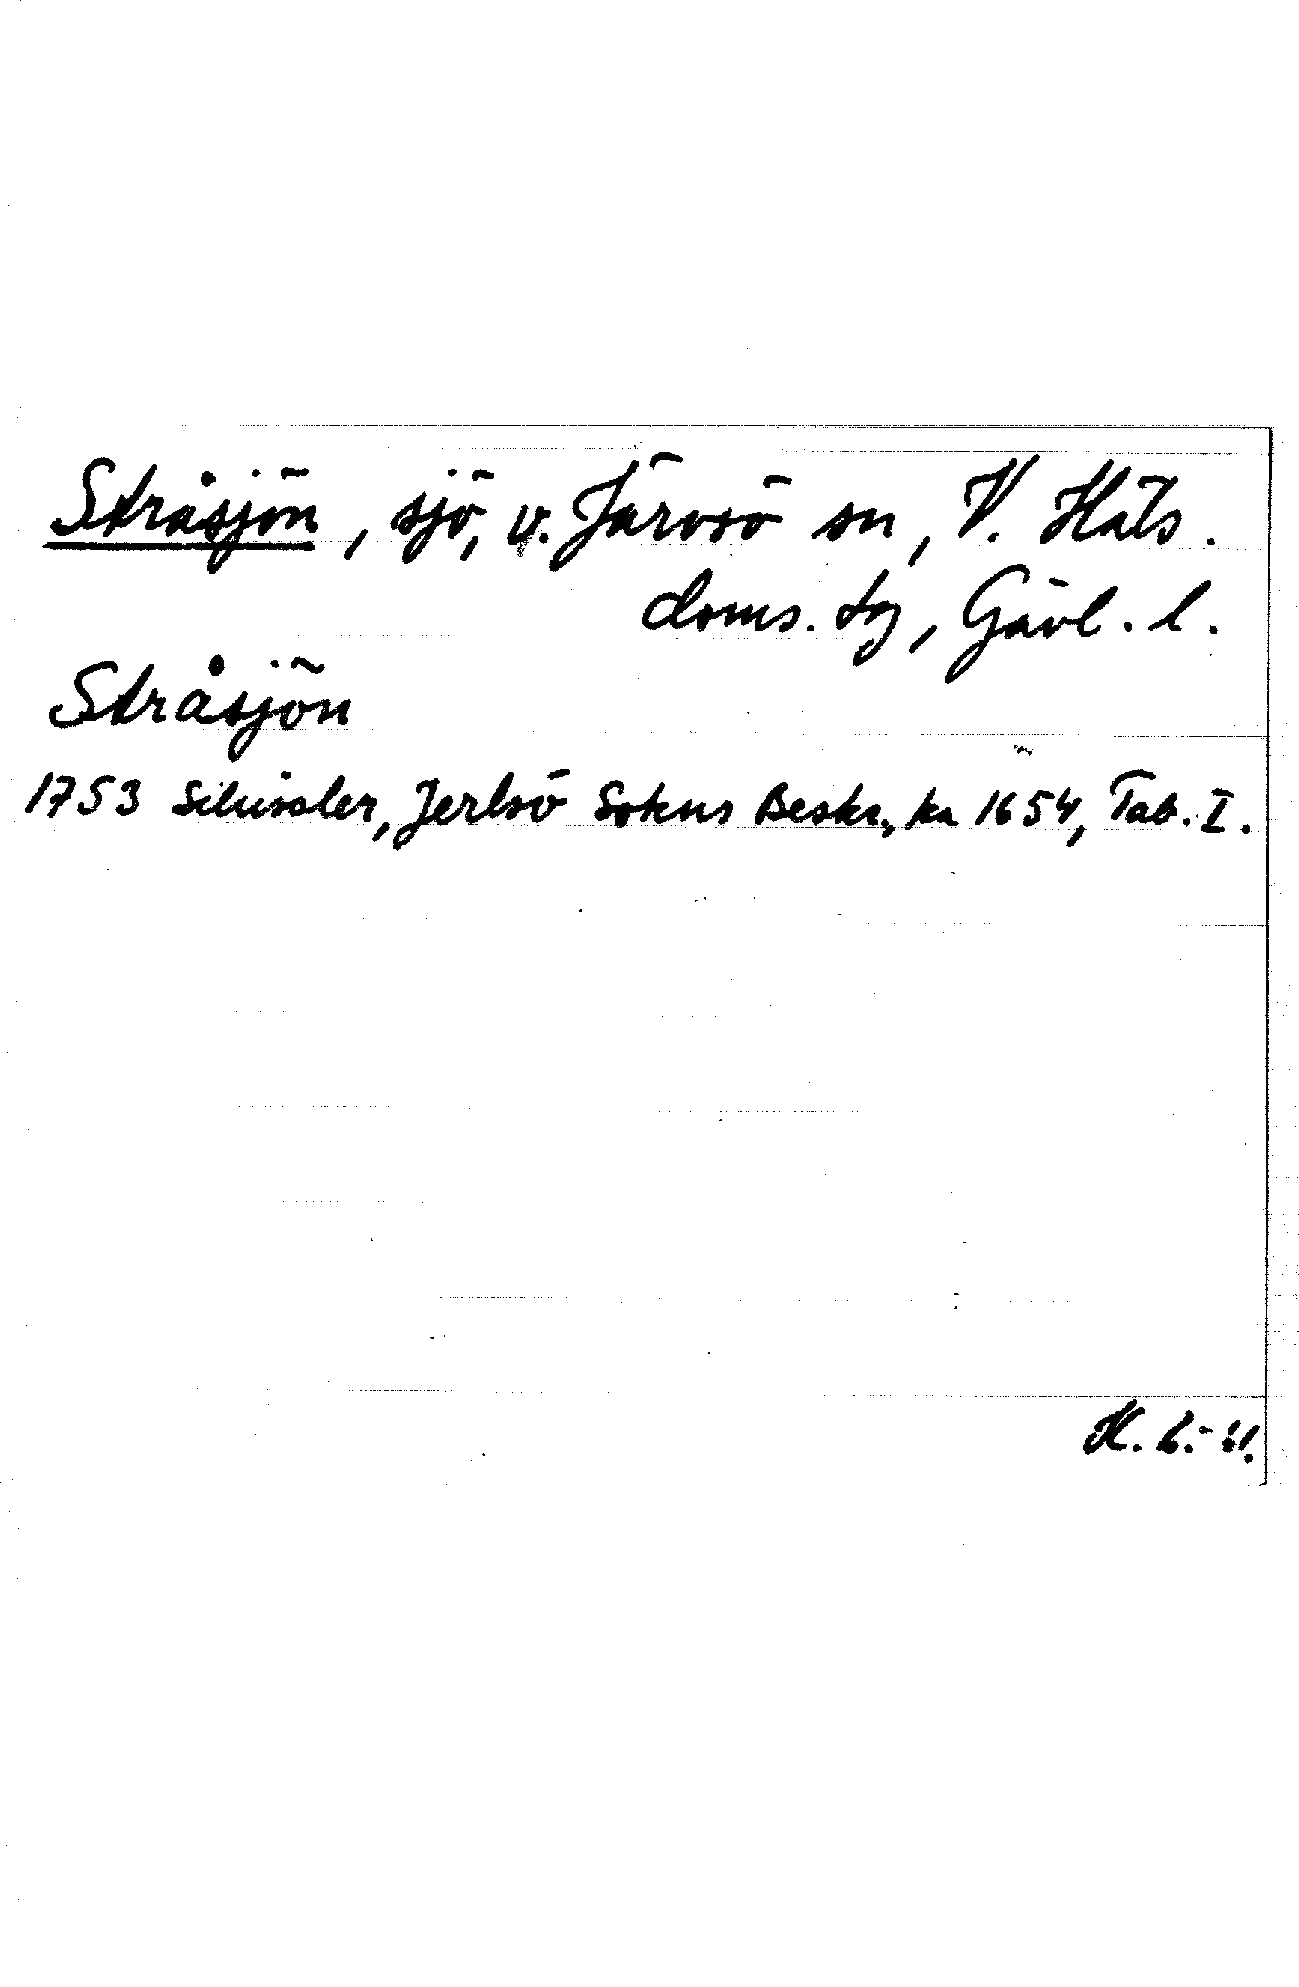 Stråsjön, sjö, v. Järvsö sn, V. Häls.
doms. tg, Gävl. l.
Stråsjön
1753 Schissler, Jerlsö Sokns Beskr., ka 1654, Tab. I.